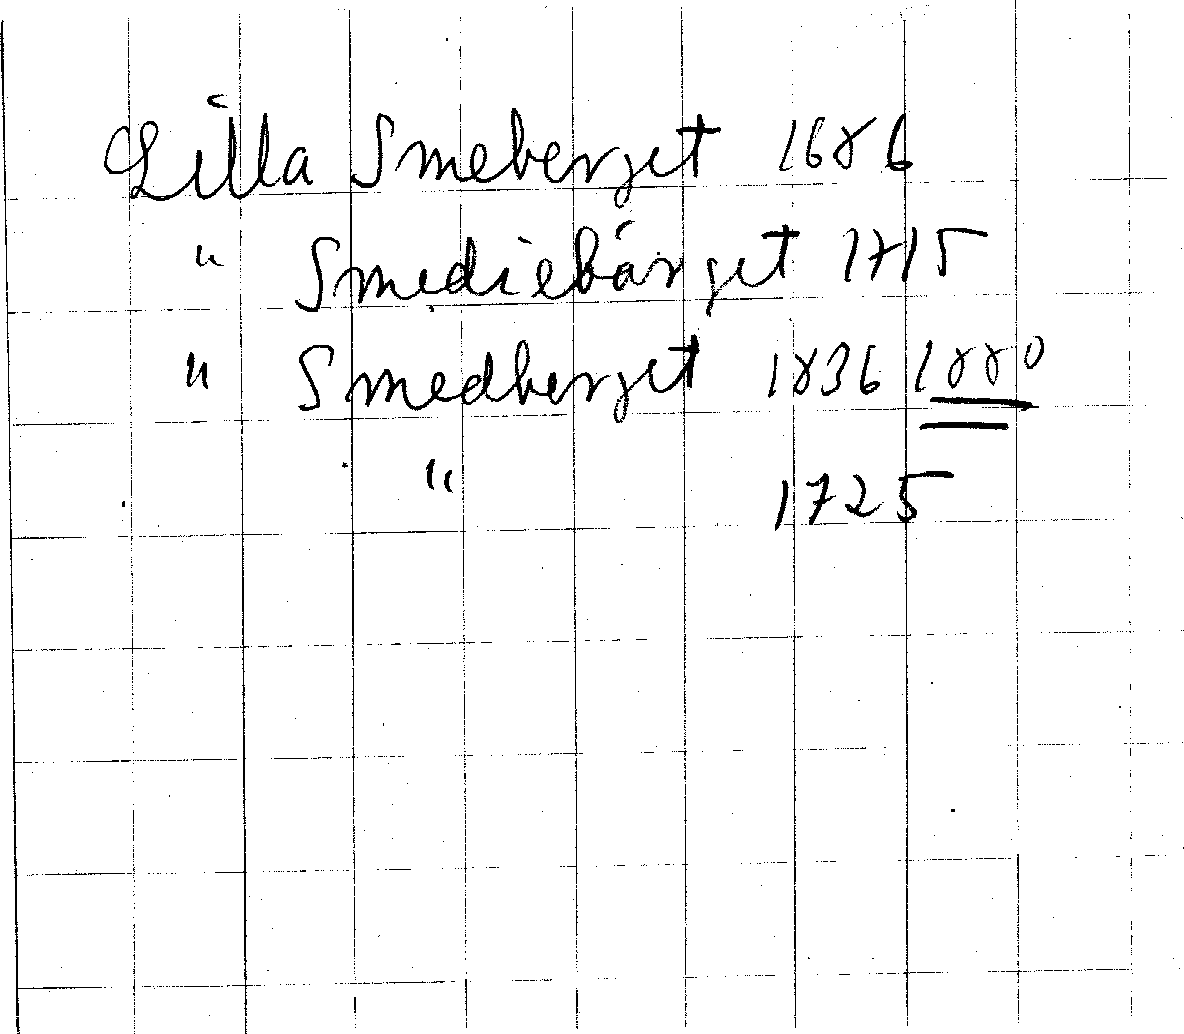 Lilla Smeberget 1686
" Smediebärget 1715
" Smedberget 1836 1880
" 1725